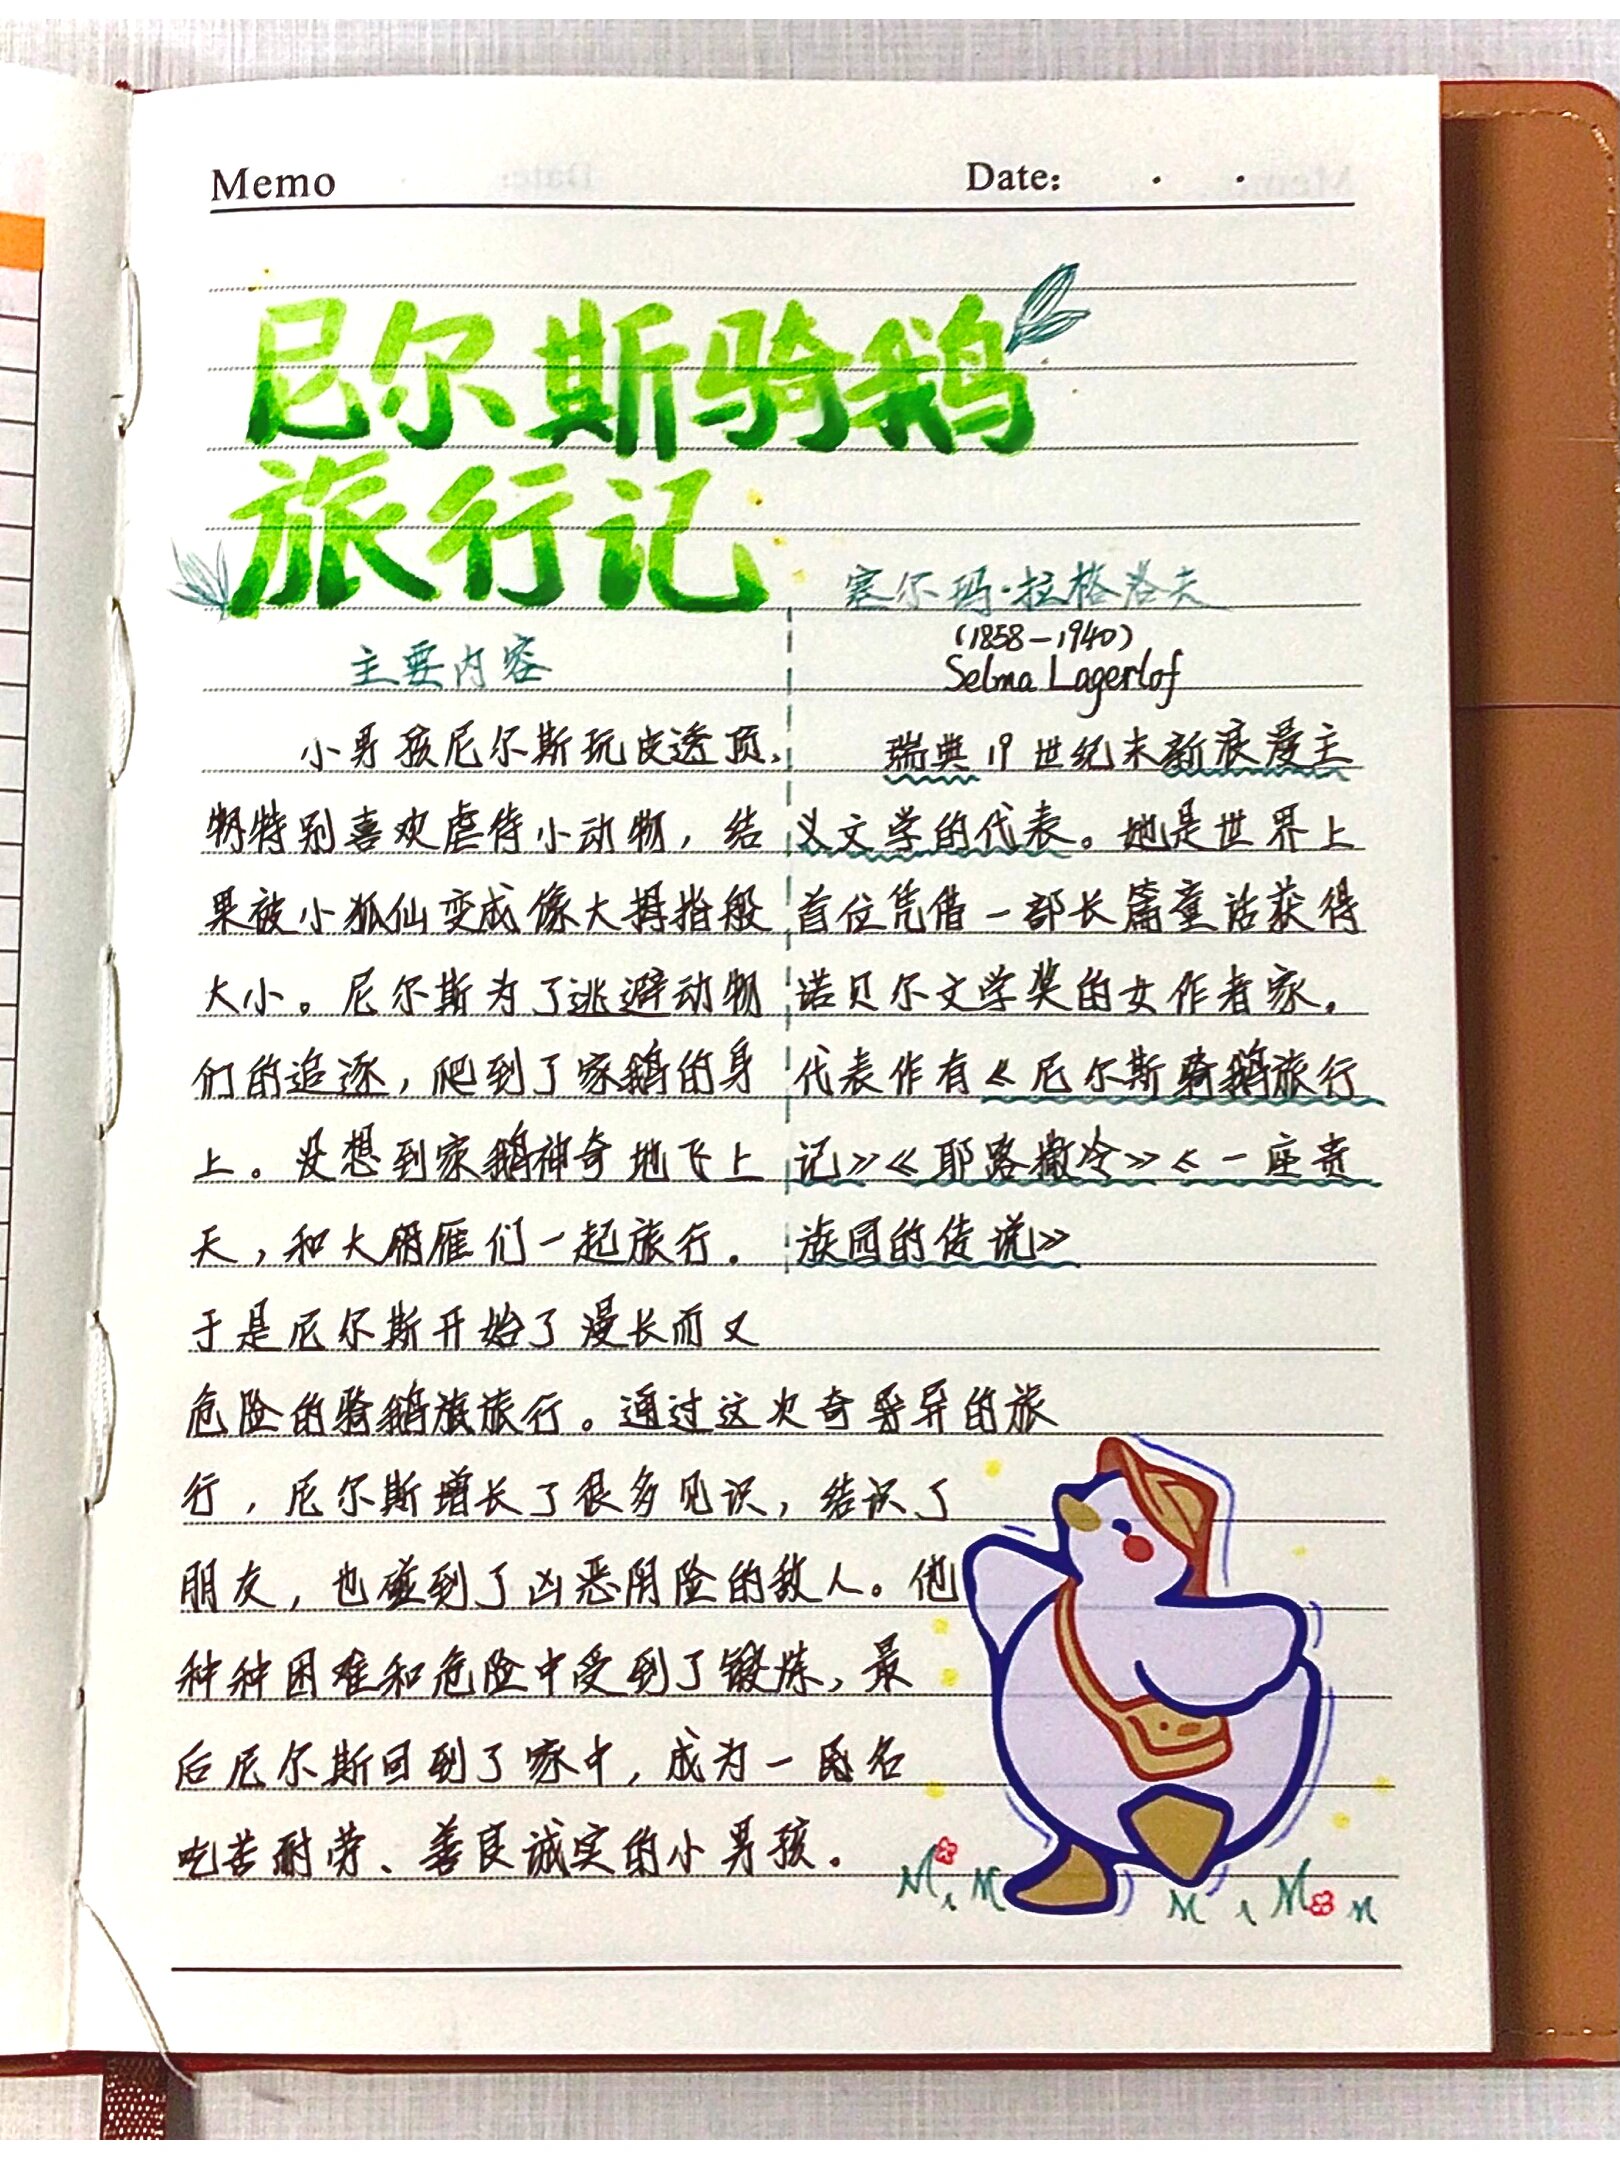 Memo
Date:
尼尔斯骑鹅
旅行记
主要内容
小男孩尼尔斯玩皮透顶,
特别喜欢虐待小动物，结
果被小狐仙变成像大拇指般
大小。尼尔斯为了逃避动物
们的追逐，爬到了家鹅的身
上。没想到家鹅神奇地飞上
天，和大雁们一起旅行.
于是尼尔斯开始了漫长而又
危险的骑鹅旅行。通过这次奇异的旅
行，尼尔斯增长了很多见识，结识了
朋友，也碰到了凶恶阴险的敌人。他
种种困难和危险中受到了锻炼，最
后尼尔斯回到了家中，成为一名
吃苦耐劳、善良诚实的小男孩。
塞尔玛·拉格洛夫
(1858-1940)
Selma Lagerlof
瑞典19世纪末新浪漫主
义文学的代表。她是世界上
首位凭借一部长篇童话获得
诺贝尔文学奖的女作者家.
代表作有《尼尔斯骑鹅旅行
记》《耶路撒冷》《一座贵
族园的传说》